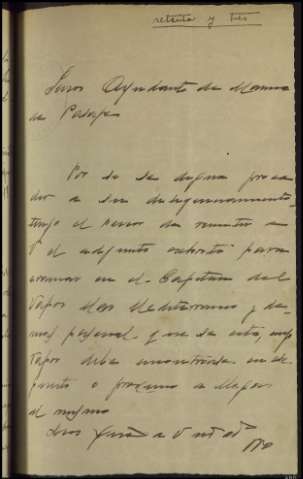 setenta y tres
Señor Ayudante de Marina
de Pasajes
Por si se digna proce
der a su
tengo el honor de remitir a
V el adjunto exhorto para
en el Capitan del
Vapor Mediterraneo y de
mas personal que se cita, cuyo
Vapor debe encontrarse en ese
puerto o proximo a llegar
al mismo
Dios gue a V ms as